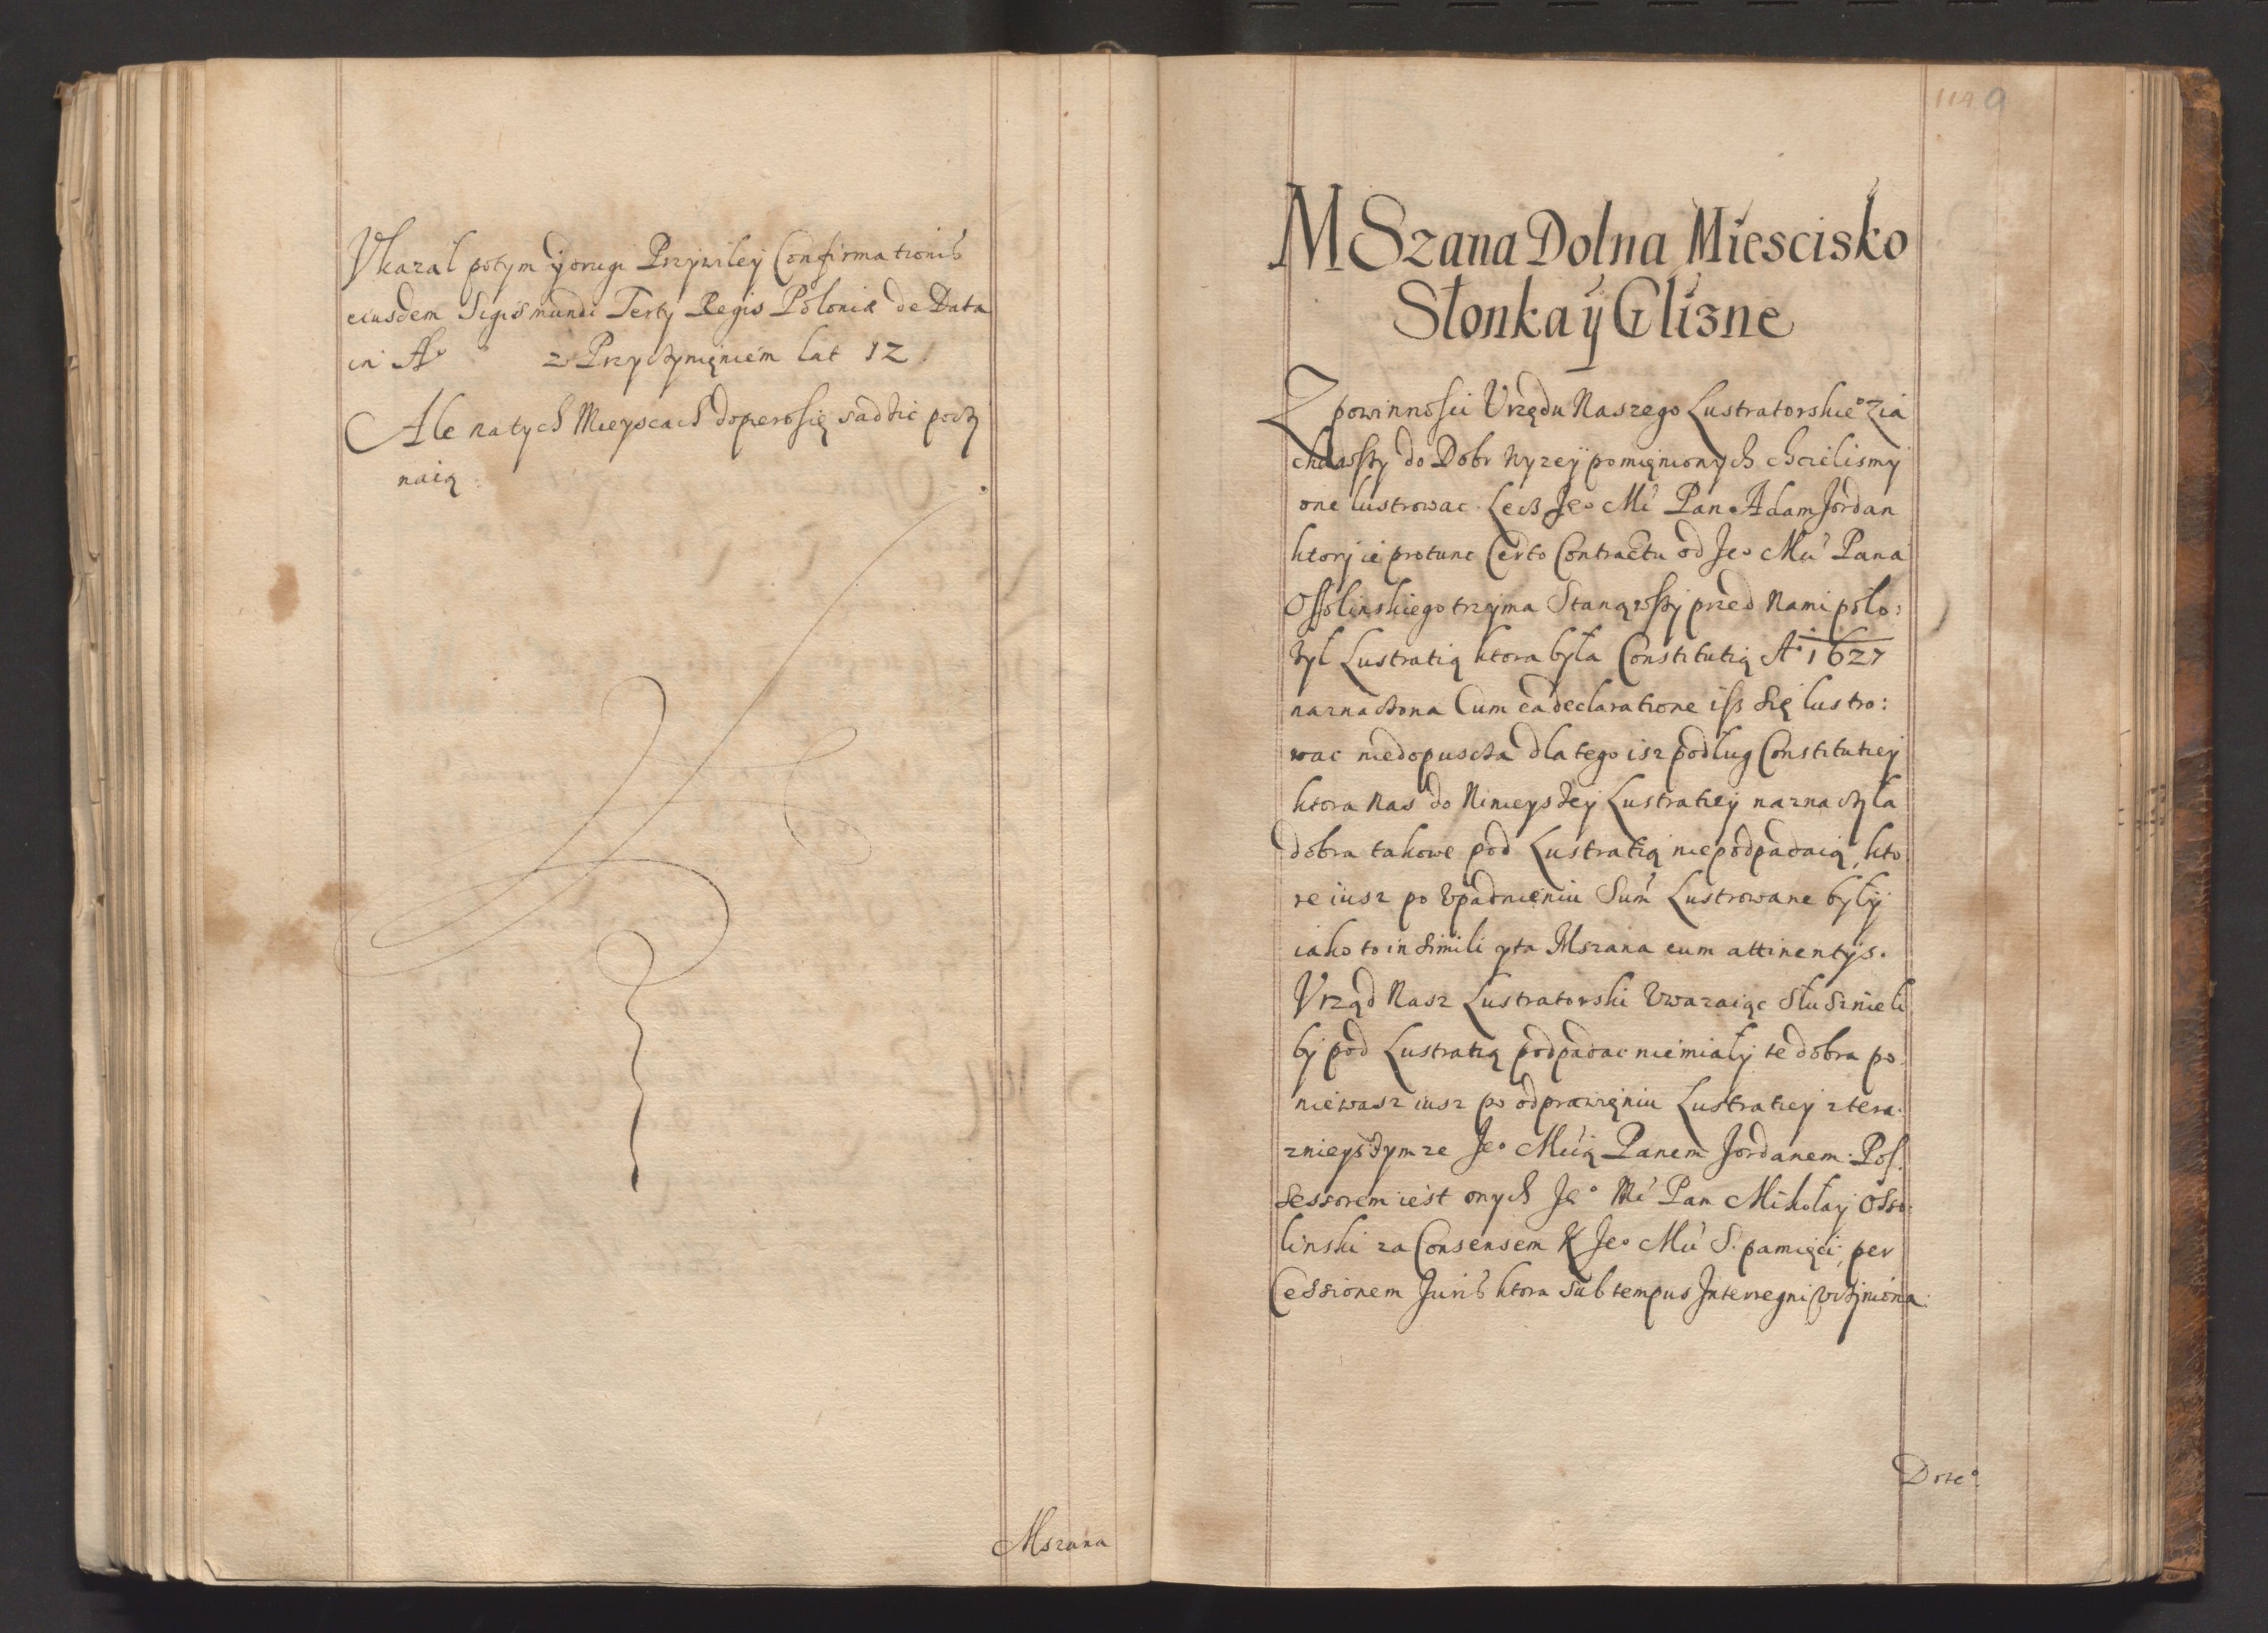 Vkazal potym y drugi Przywiley Confirmationis
eiusdem Sigismundi Tertij Regis Poloniæ de Data
in Aº z Przyczynięniem lat 12
Ale na tych Mieyscach dopero się sadzic pocz
naią
Mszana
114 9
MSzana Dolna Miescisko
Słonka ÿ Glisne
Z powinnosci Vrzędu Naszego Lustratorskieº zia
chawszy do Dobr wyzey pomięnionych chcielismy
one lustrowac. Lecz Jeº Mć Pan Adam Jordan
ktory ie protunc Certo Contractu od Jeº Mći Pana
Ossolinskiego trzyma Stanąwszy przed Nami poło:
zył Lustratią ktora była Constitutią Aº 1627
naznaczona Cum ea declaratione isz się lustro:
wac niedopuscza dla tego isz podług Constitutiey
ktora Nas do Ninieyszey Lustratiey naznaczyła
dobra takowe pod Lustratią niepodpadaią, kto
re iusz po Vpadnieniu Sum Lustrowane były
iako to in simili ... Mszana cum attinentÿs.
Vrząd Nasz Lustratorski Vwazaiąc słusznieli
by pod Lustratią podpadac niemiały te dobra po
niewasz iusz po odprawięniu Lustratiey z tera:
znieyszym ze Jeº Mćią Panem Jordanem. Pos
sessorem iest onych Jeº Mć Pan Mikołay Osso:
linski za Consensem K Jeº Mći S. pamięci, per
Cessionem Juris ktora sub tempus Interregni vczyniona
Doze: